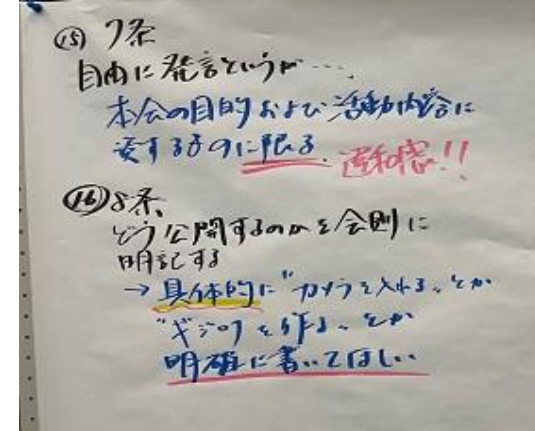 ⑮ 7条
自由に発言というが…、
本会の目的および活動内容に
資するものに限る. 違和感!!
⑯ 8条
どう公開するのかを会則に
明記する
→ 具体的に"カメラを入れる"とか
"ギジロクを作る"とか
明確に書いてほしい